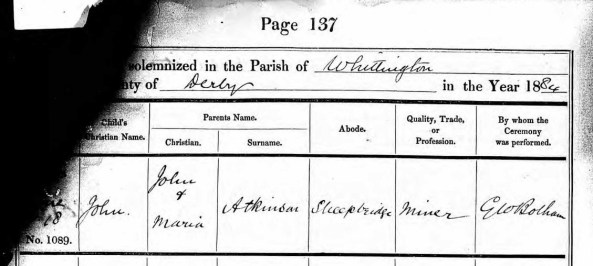 Page 137
solemnized in the Parish of Whittington
nty of Derby in the Year 1884
Child's Christian Name. Parents Name. Abode. Quality, Trade, or Profession. By whom the Ceremony was performed.
Christian. Surname.
18 John. John & Maria Atkinson Sheepbridge Miner G W Botham
No. 1089.